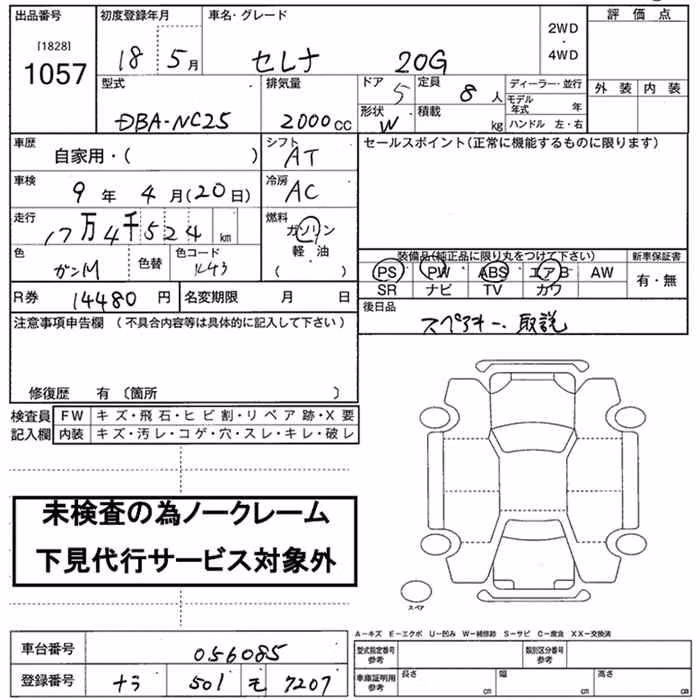 出品番号 初度登録年月 車名・グレード 2WD・4WD 評価点
[1828]
1057 18 5月 セレナ 20G
外装 内装
型式 排気量 ドア 定員 ディーラー・並行
DBA-NC25 2000cc 5 8人 モデル年式 年
形状 積載 ハンドル 左・右
W kg
車歴 シフト セールスポイント(正常に機能するものに限ります)
自家用・( ) AT
車検 冷房
9年 4月(20日) AC
走行 燃料
17万4千524km ガソリン
軽油
( )
色 色替 色コード
ガンM K43
装備品(純正品に限り丸をつけて下さい) 新車保証書
PS PW ABS エアB AW 有・無
SR ナビ TV カワ
R券 14480円 名変期限 月 日 後日品
スペアキー、取説
注意事項申告欄 (不具合内容等は具体的に記入して下さい)
修復歴 有 〔箇所 〕
検査員 FW キズ・飛石・ヒビ割・リペア跡・X要
記入欄 内装 キズ・汚レ・コゲ・穴・スレ・キレ・破レ
未検査の為ノークレーム
下見代行サービス対象外
スペア
A－キズ E－エクボ U－凹み W－補修跡 S－サビ C－腐食 XX－交換済
車台番号 056085 型式指定番号 参考 類別区分番号 参考
登録番号 ナラ 501 モ 7207 車庫証明用 参考 長さ cm 幅 cm 高さ cm